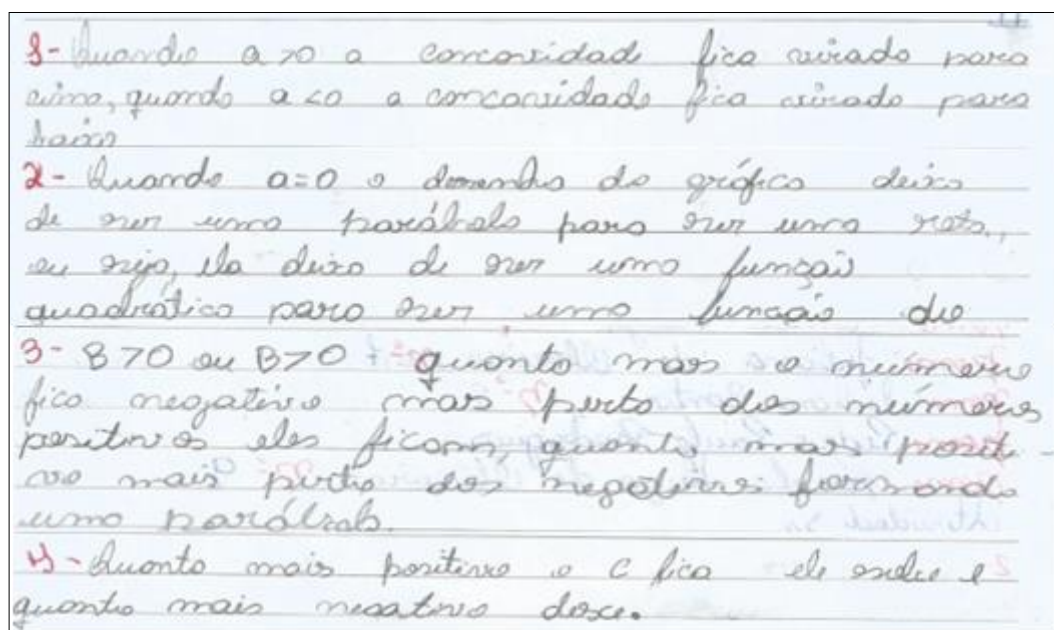 1- Quando a >0 a concavidade fica virado para
cima, quando a <0 a concavidade fica virado para
baixo
2- Quando a=0 o desenho do gráfico deixa
de ser uma parábola para ser uma reta,
ou seja, ela deixa de ser uma função
quadrática para ser uma função do
3- B>0 ou B>0 quanto mas o número
fica negativo mas perto dos números
positivos eles ficam, quanto mas positi
vo mais perto dos negativos formando
uma parábola.
4- Quanto mais positivo o C fica ele sobe e
quanto mais negativo desce.